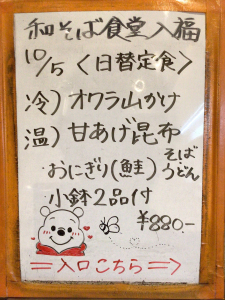 和そば食堂入福
10/5〈日替定食〉
冷)オクラ山かけ
温)甘あげ昆布
そば
うどん
おにぎり(鮭)
小鉢2品付
¥880.-
=入口こちら=>